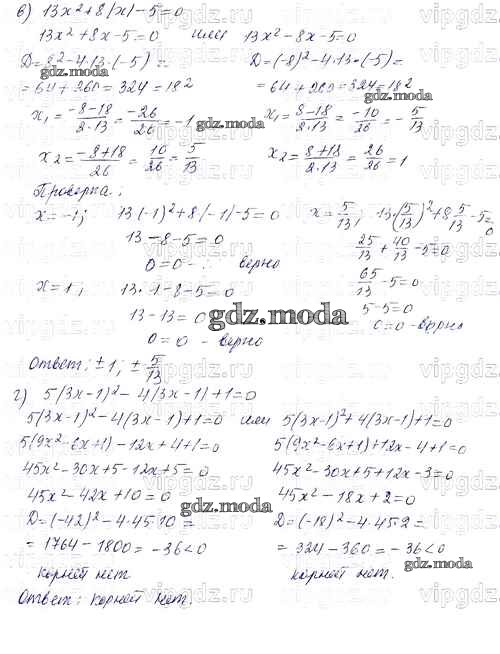 в) 13x²+8|x|-5=0
13x²+8x-5=0 или 13x²-8x-5=0
D=8²-4·13·(-5)= D=(-8)²-4·13·(-5)=
=64+260=324=18² =64+260=324=18²
x₁=(-8-18)/(2·13)=(-26)/26=-1 x₁=(8-18)/(2·13)=(-10)/26=-5/13
x₂=(-8+18)/26=10/26=5/13 x₂=(8+18)/(2·13)=26/26=1
Проверка:
x=-1; 13(-1)²+8|-1|-5=0 x=5/13; 13·(5/13)²+8·5/13-5=0
13-8-5=0 25/13+40/13-5=0
0=0 - верно 65/13-5=0
x=1; 13·1-8-5=0 5-5=0
13-13=0 0=0-верно
0=0 - верно
Ответ: ±1; ±5/13
г) 5(3x-1)²-4|3x-1|+1=0
5(3x-1)²-4(3x-1)+1=0 или 5(3x-1)²+4(3x-1)+1=0
5(9x²-6x+1)-12x+4+1=0 5(9x²-6x+1)+12x-4+1=0
45x²-30x+5-12x+5=0 45x²-30x+5+12x-3=0
45x²-42x+10=0 45x²-18x+2=0
D=(-42)²-4·45·10= D=(-18)²-4·45·2=
=1764-1800=-36<0 =324-360=-36<0
корней нет корней нет.
Ответ: корней нет.
gdz.moda
vipgdz.ru